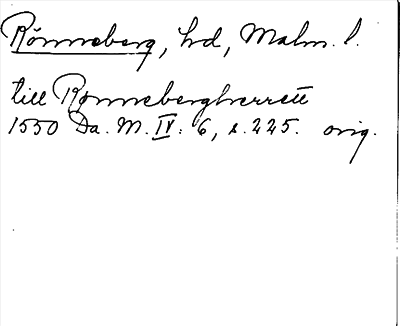 Rönneberg, hd, Malm. l.
till Ronnebergherrett
1550 Da. M. IV: 6, s. 225. orig.